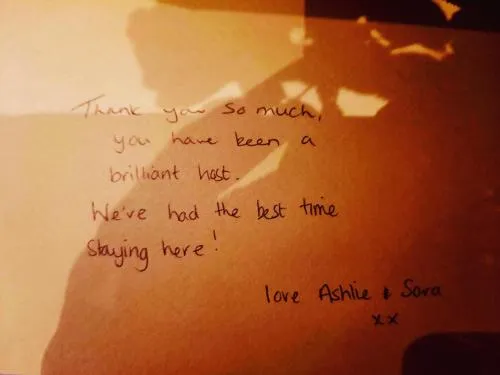 Thank you so much,
you have been a
brilliant host.
We've had the best time
staying here!
love Ashlie & Sara
xx